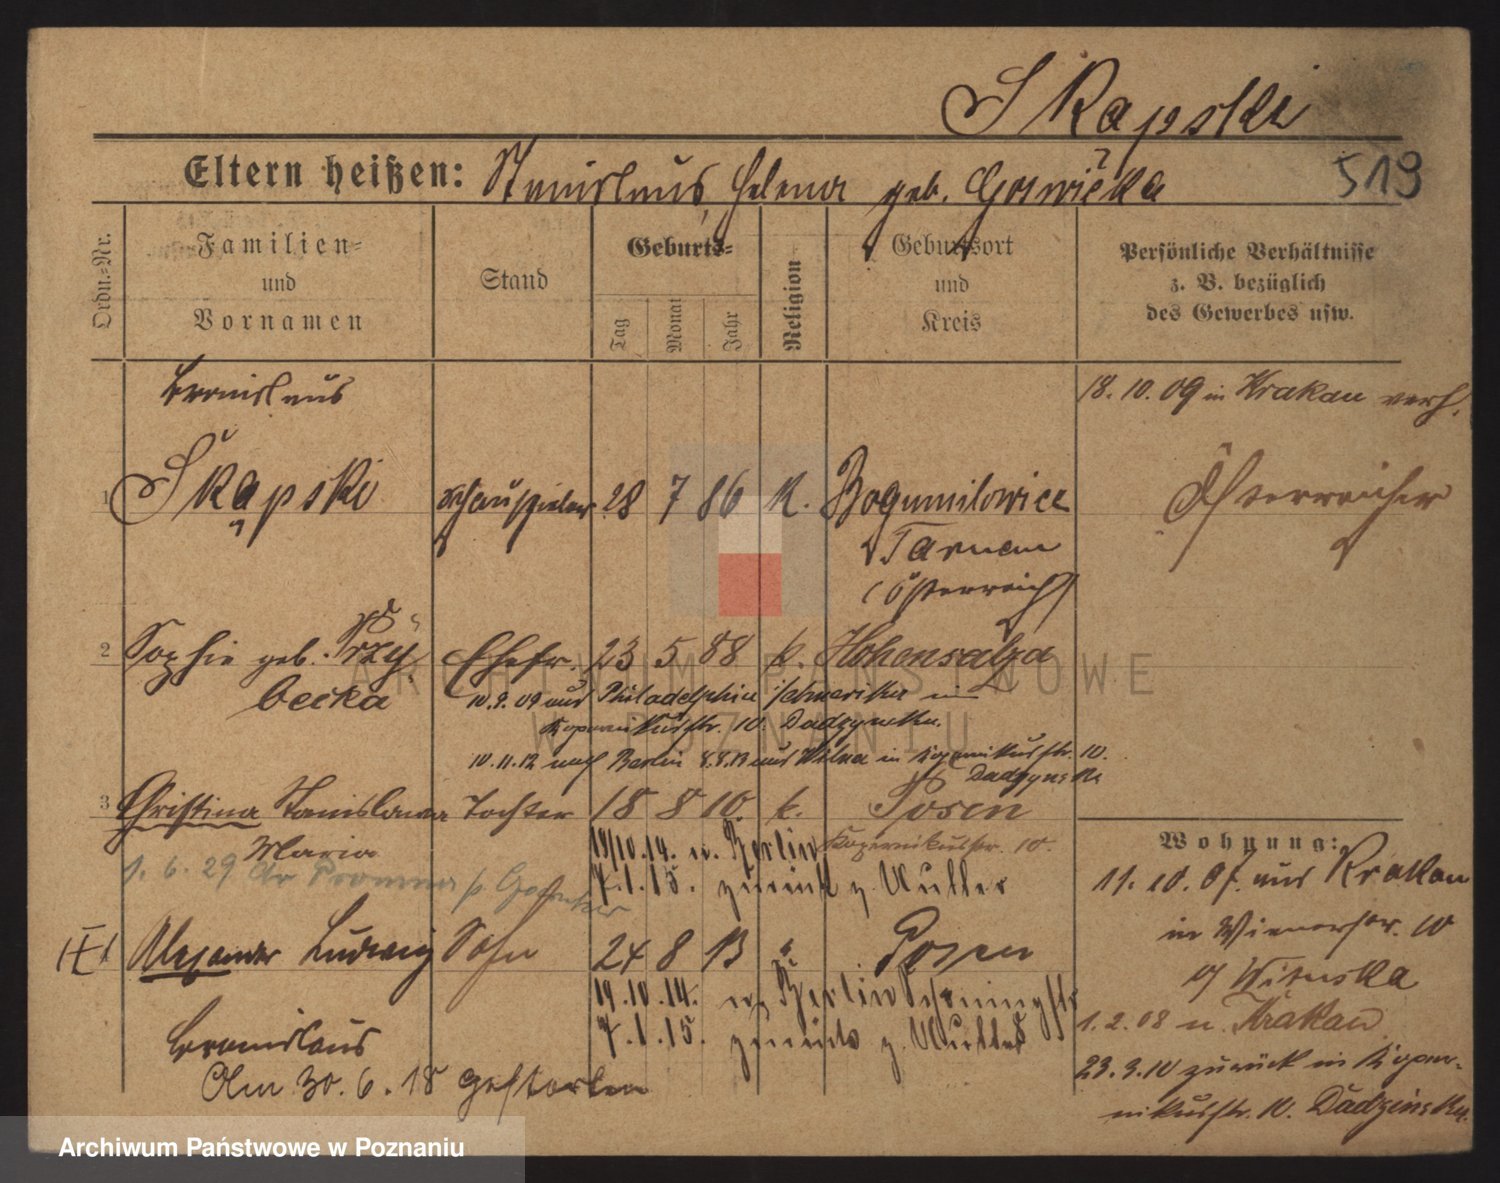 Skapski
Eltern heißen: Stanislaus, Helena geb.
519
Ordn.=Nr.
Familien=
und
Vornamen
Stand
Geburts=
Tag
Monat
Jahr
Religion
Geburtsort
und
Kreis
Persönliche Verhältnisse
z. B. bezüglich
des Gewerbes usw.
Bronislaus
18. 10. 09 in Krakau verh.
1 Skapski Schauspieler 28 7 86 K. Bogumilowice Österreicher
Tarnow
(Österreich)
2 Sophie geb. Przy- Ehefr. 23 5 88 k. Hohensalza
becka
10.9.09 aus Philadelphia in
Kopernikusstr. 10.
10.11.12 nach Berlin 8.8.13 aus Wilna in Kopernikusstr. 10.
3 Christina Stanislawa Tochter 18 8 10. k. Posen
Maria
19/10.14. n. Berlin Kopernikusstr. 10.
1. 6. 29
7.1.15. zurück z. Mutter
Alexander Ludwig Sohn 24 8 13 " Posen
19.10.14. n. Berlin
7.1.15. zurück z. Mutter
Bronislaus
Am 30. 6. 18 gestorben
Wohnung:
11. 10. 07. aus Krakau
in Wienerstr. 10
b/ Wituska
1.2.08 n. Krakau
23.9.10 zurück in Koper-
nikusstr. 10.
ARCHIWUM PAŃSTWOWE
W POZNANIU
Archiwum Państwowe w Poznaniu